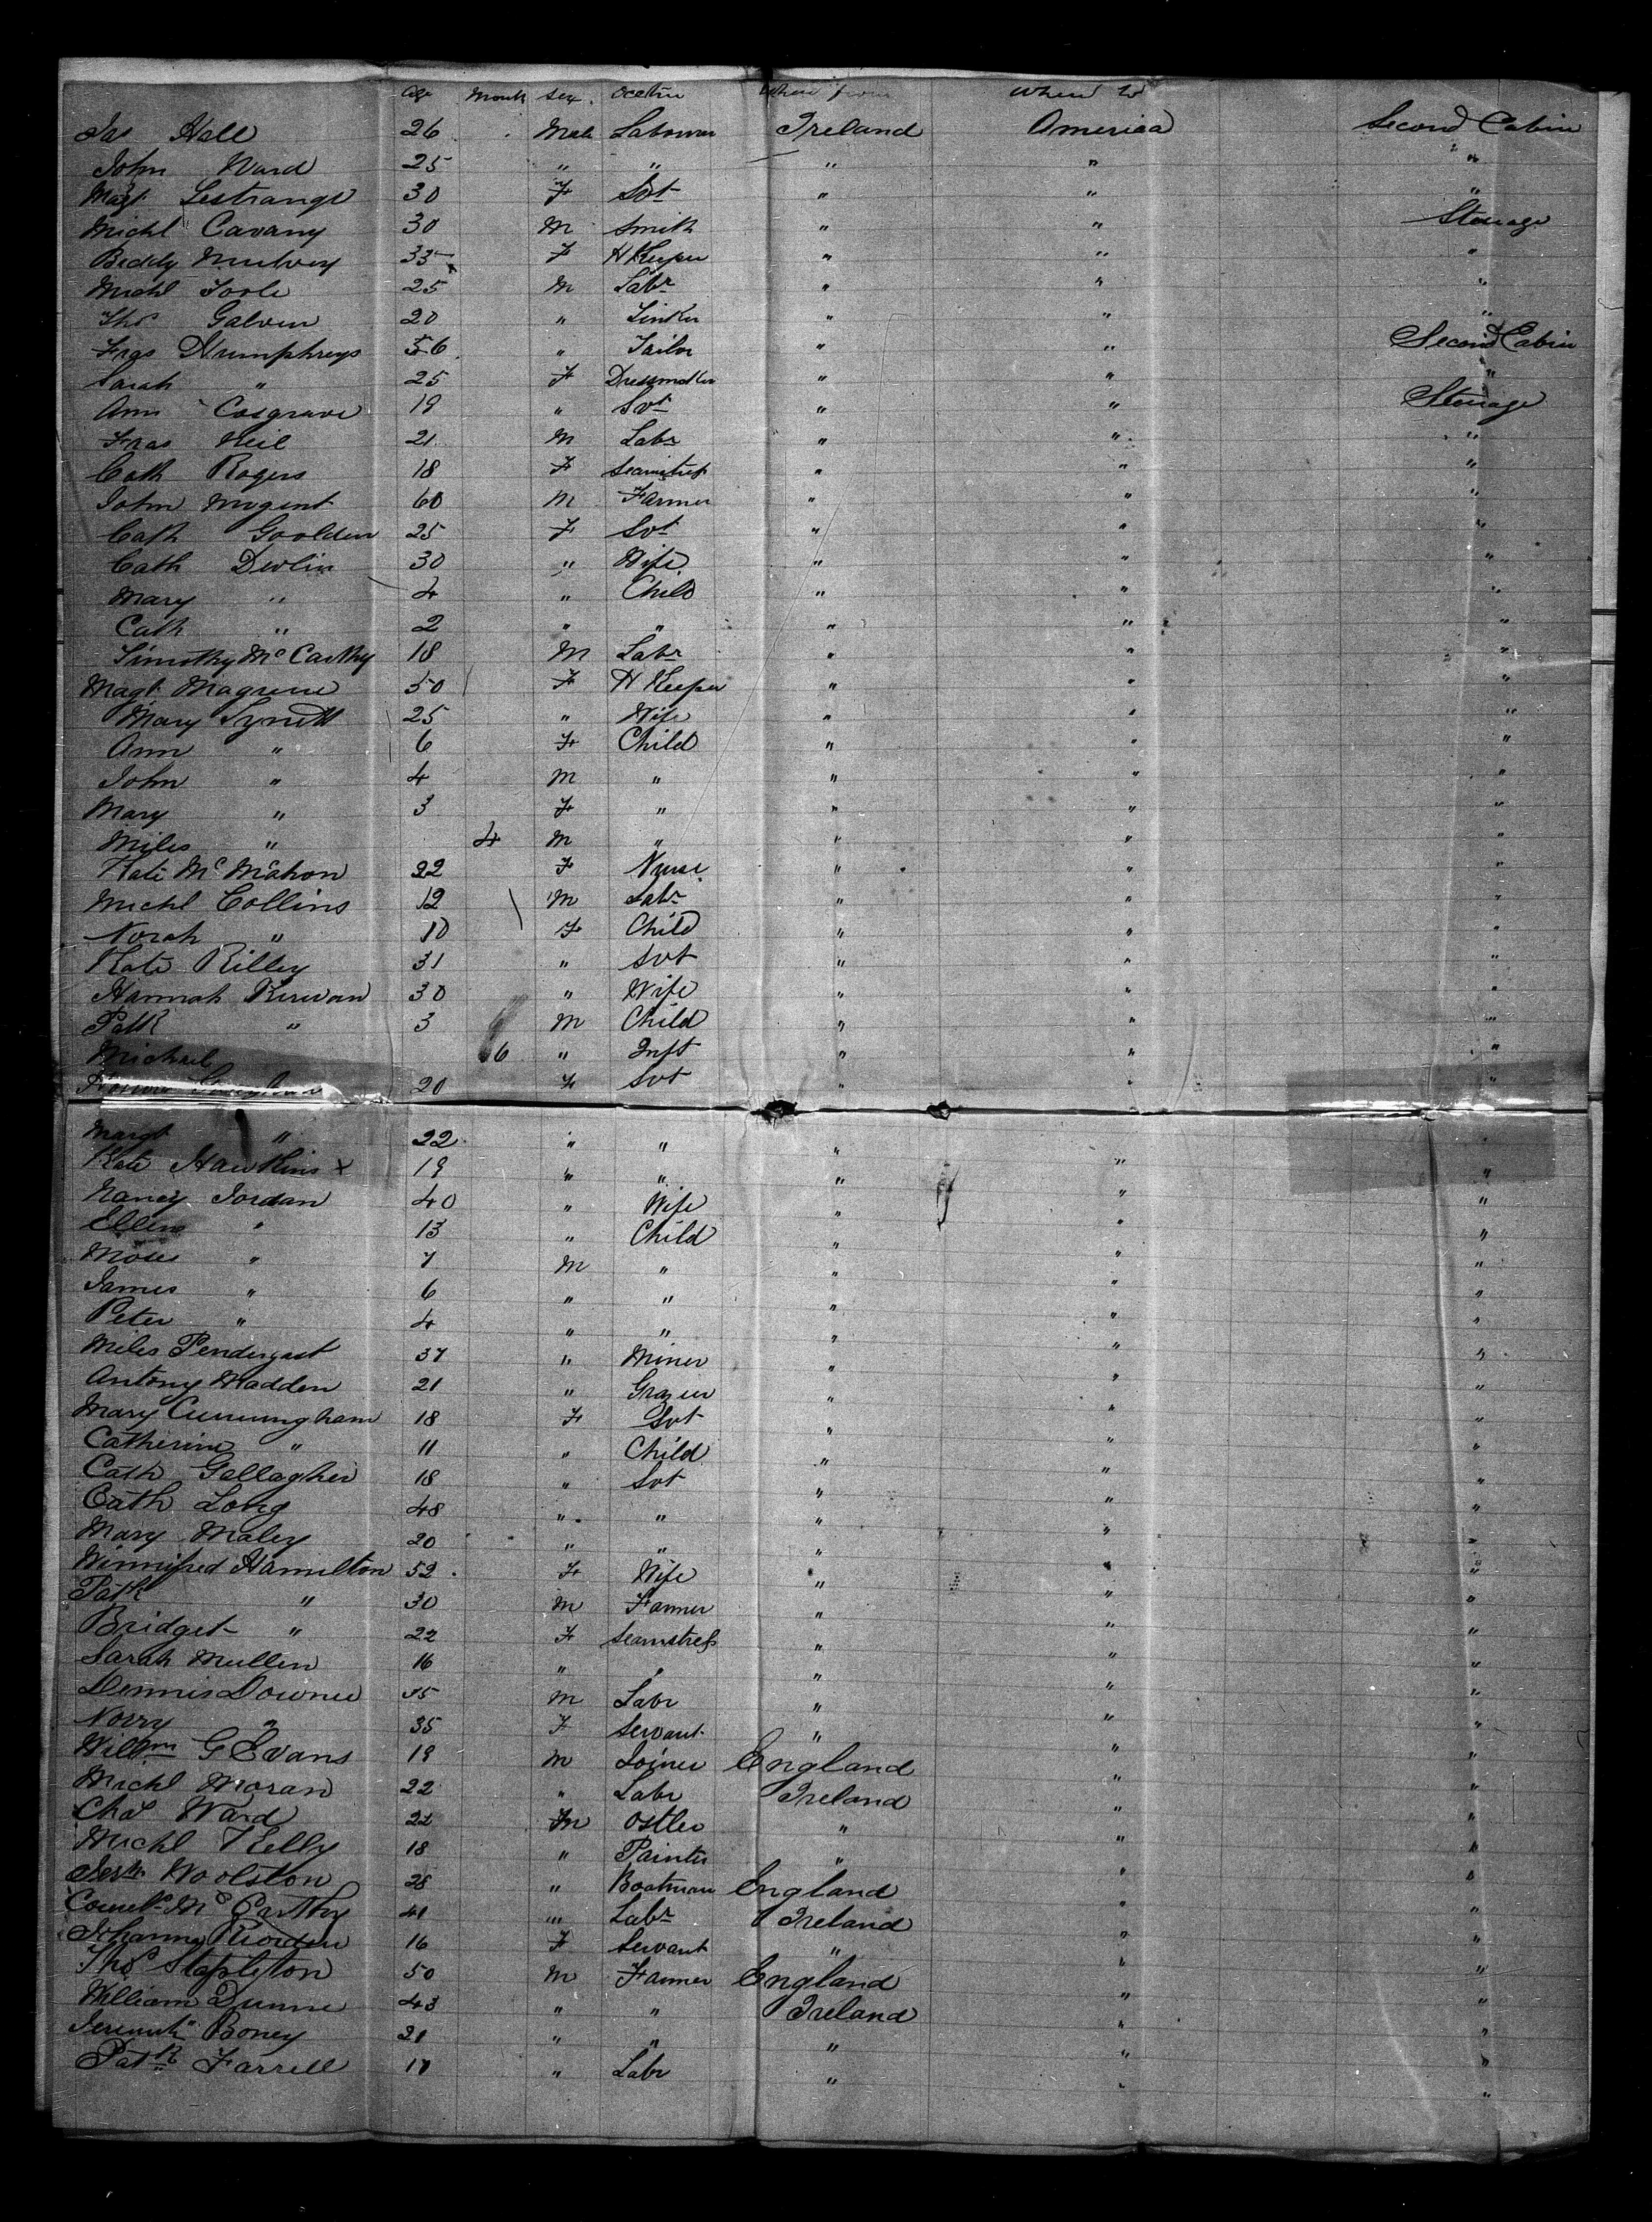 Age Month Sex Occtn Where from Where to
Jas Hall 26 Male Labourer Ireland America Second Cabin
John Ward 25 " " " " "
Magt Lestrange 30 F Svt " " "
Michl Cavany 30 M Smith " " Sterage
Biddy Mulvey 33 F H Keeper " " "
Michl Toole 25 M Labr " " "
Thos Galven 20 " " " "
Fras Humphreys 56 " Tailor " " Second Cabin
Sarah " 25 F Dressmaker " " "
Ann Cosgrave 19 " Svt " " Sterage
Fras Neil 21 M Labr " " "
Cath Rogers 18 F Seamstress " " "
John Nugent 60 M Farmer " " "
Cath Goolden 25 F Svt " " "
Cath Devlin 30 " Wife " " "
Mary " 4 " Child " " "
Cath " 2 " " " " "
Timothy McCarthy 18 M Labr " " "
Magt 50 F H Keeper " " "
Mary Lynett 25 " Wife " " "
Ann " 6 F Child " " "
John " 4 M " " " "
Mary " 3 F " " " "
Miles " 4 M " " " "
Kate McMahon 22 F Nurse " " "
Michl Collins 12 M Labr " " "
Norah " 10 F Child " " "
Kate Rilley 31 " Svt " " "
Hannah Kirwan 30 " Wife " " "
Patk " 3 M Child " " "
Michael 6 " Inft " " "
20 F Svt " " "
Margt " 22 " " " "
Kate Hawkins x 19 " " " " "
Nancy Jordan 40 " Wife " " "
Ellen " 13 " Child " " "
Moses " 7 M " " " "
James " 6 " " " " "
Peter " 4 " " " " "
Miles Pendergast 37 " Miner " " "
Antony Madden 21 " Grazier " " "
Mary Cunningham 18 F Svt " " "
Catherine " 11 " Child " " "
Cath Gallagher 18 " Svt " " "
Cath Long 48 " " " " "
Mary Maley 20 " " " " "
Winnifred Hamilton 52 F Wife " " "
Patk " 30 M Farmer " " "
Bridget " 22 F Seamstress " " "
Sarah Mullen 16 " " " " "
Dennis Downie 35 M Labr " " "
Norry " 35 F Servant " " "
Willm G Evans 19 M Joiner England " "
Michl Moran 22 " Labr Ireland " "
Chas Ward 22 M Ostler " " "
Michl Kelly 18 " Painter " " "
Woolston 28 " Boatman England " "
McCarthy 41 " Labr Ireland " "
Johanna Riorden 16 F Servant " " "
Thos Stapleton 50 M Farmer England " "
William Dunne 43 " " Ireland " "
Boney 21 " " " " "
Patk Farrell 17 " Labr " " "